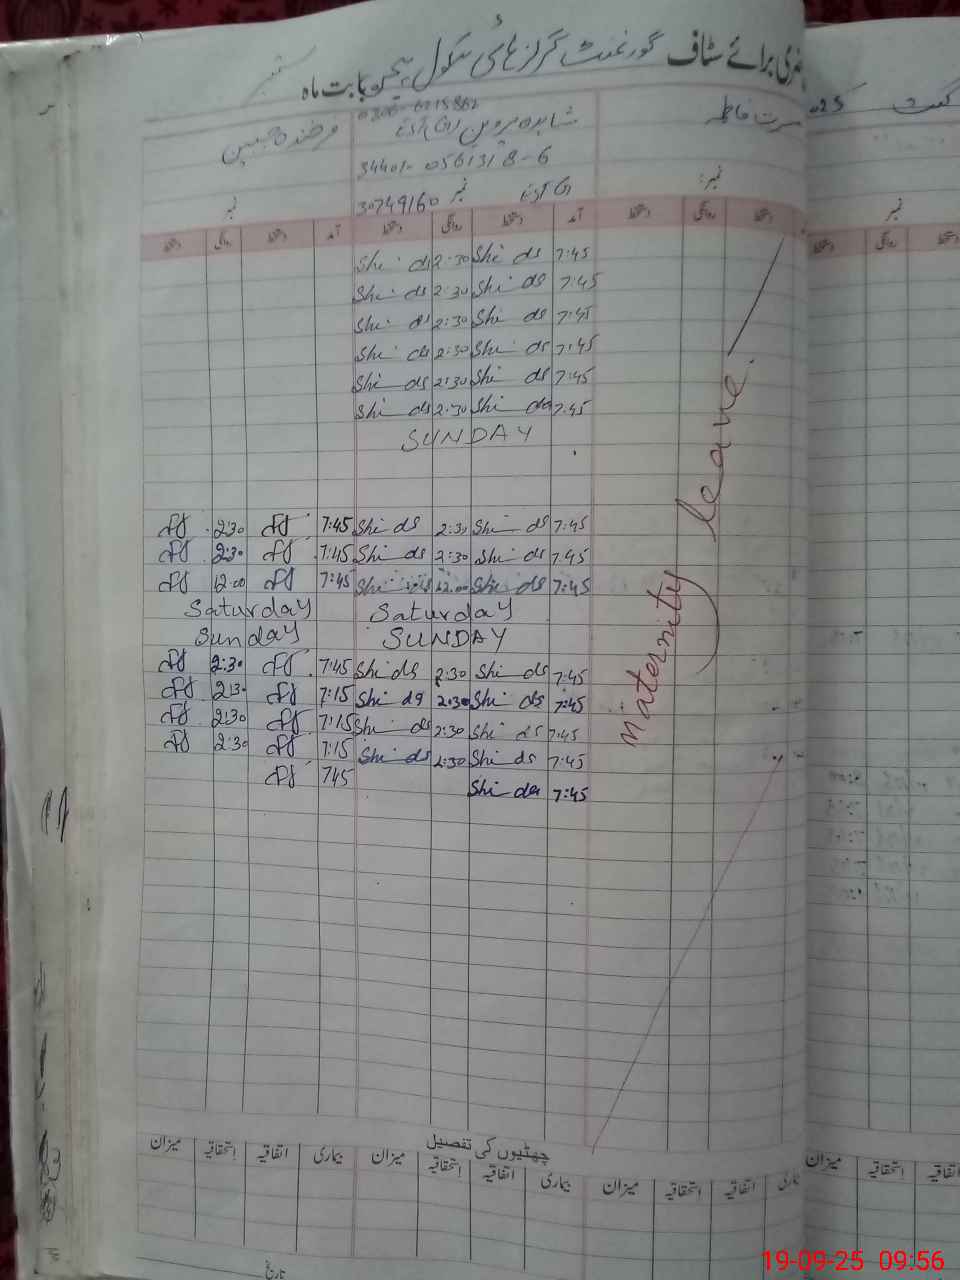 حاضری برائے سٹاف گورنمنٹ گرلز ہائی سکول بابت ماہ ستمبر
مسرت فاطمہ
شاہدہ پروین EST(G)
0306-6215862
34401-0561318-6
EST G
نمبر 30749160
فرخندہ جبیں
نمبر:
نمبر
آمد دستخط روانگی دستخط آمد دستخط روانگی دستخط
دستخط روانگی دستخط
Shi ds 2:30 Shi ds 7:45
Shi ds 2:30 Shi ds 7:45
Shi ds 2:30 Shi ds 7:45
Shi ds 2:30 Shi ds 7:45
Shi ds 2:30 Shi ds 7:45
Shi ds 2:30 Shi ds 7:45
SUNDAY
2:30 7:45 Shi ds 2:30 Shi ds 7:45
2:30 7:45 Shi ds 2:30 Shi ds 7:45
12:00 7:45 Shi ds 12:00 Shi ds 7:45
Saturday Saturday
Sunday SUNDAY
2:30 7:45 Shi ds 2:30 Shi ds 7:45
2:30 7:15 Shi ds 2:30 Shi ds 7:45
2:30 7:15 Shi ds 2:30 Shi ds 7:45
2:30 7:15 Shi ds 2:30 Shi ds 7:45
745 Shi ds 7:45
Maternity leave.
چھٹیوں کی تفصیل
بیماری اتفاقیہ استحقاقیہ میزان بیماری اتفاقیہ استحقاقیہ میزان بیماری اتفاقیہ استحقاقیہ میزان
اتفاقیہ استحقاقیہ میزان
تاریخ
19-09-25 09:56